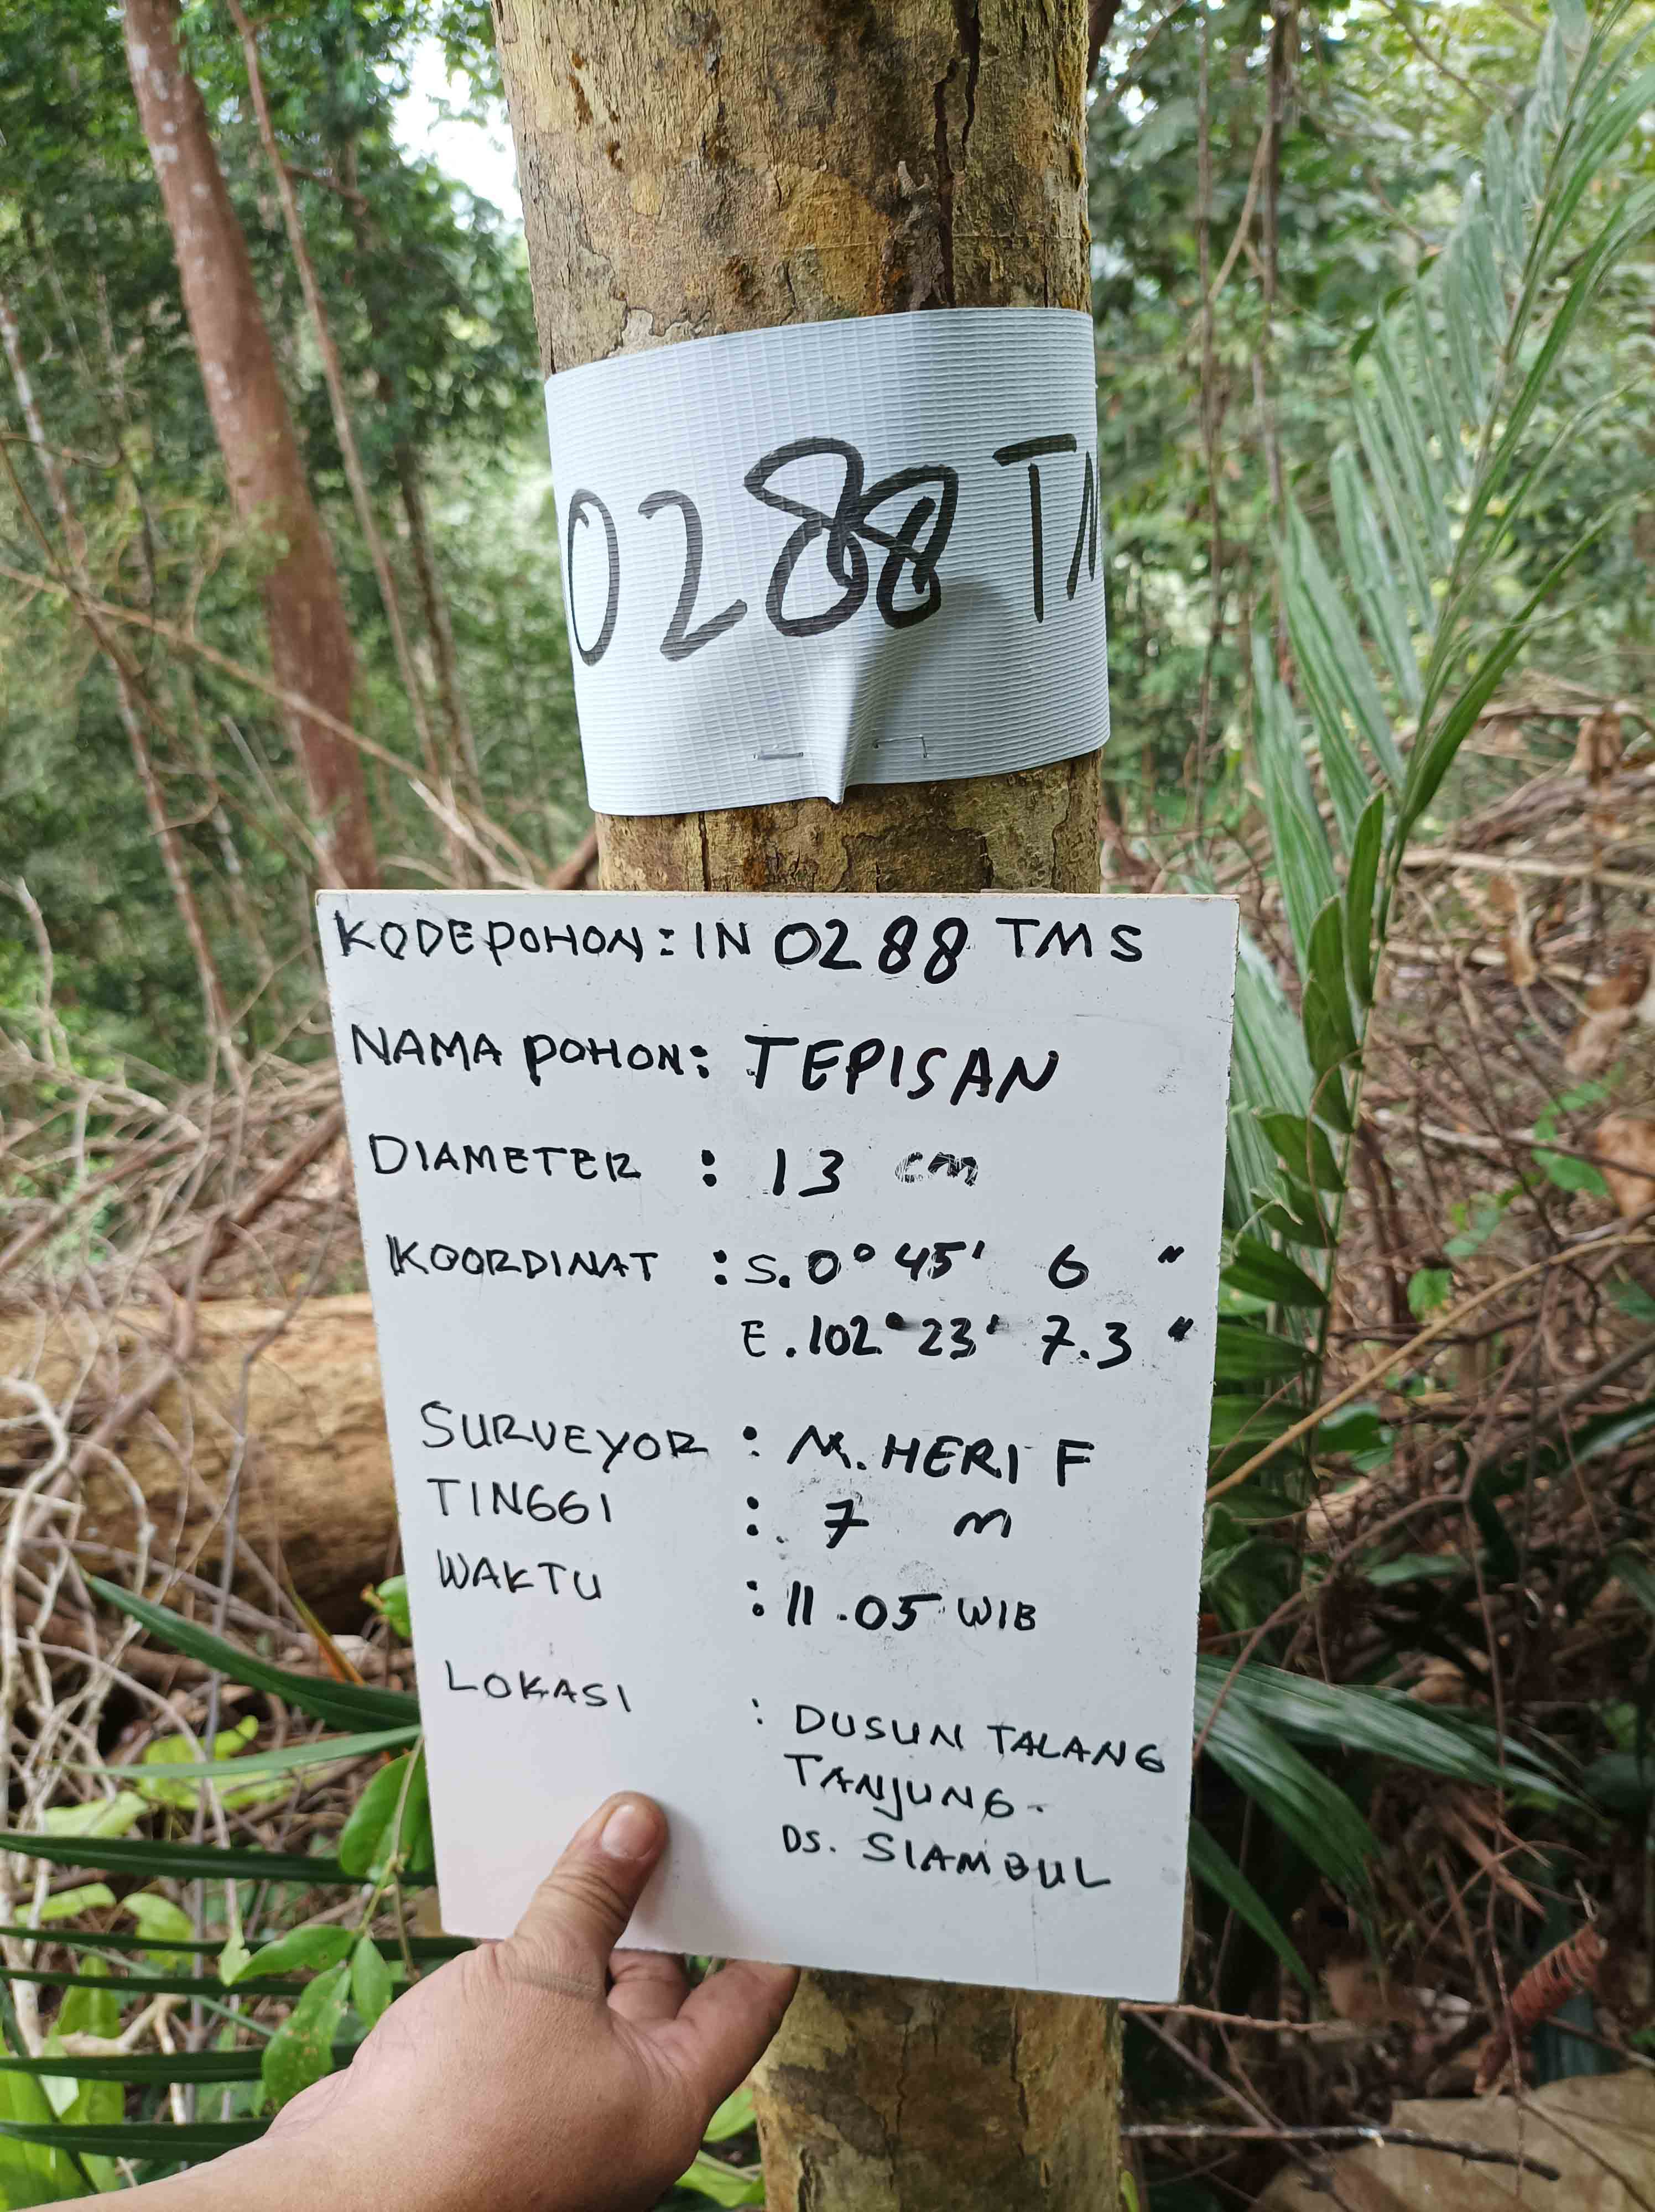 0288 TM
KODE POHON : IN 0288 TMS
NAMA POHON : TEPISAN
DIAMETER : 13 cm
KOORDINAT : S. 0° 45' 6 "
E. 102° 23' 7.3 "
SURVEYOR : M. HERI F
TINGGI : 7 m
WAKTU : 11.05 WIB
LOKASI : DUSUN TALANG
TANJUNG -
DS. SIAMBUL